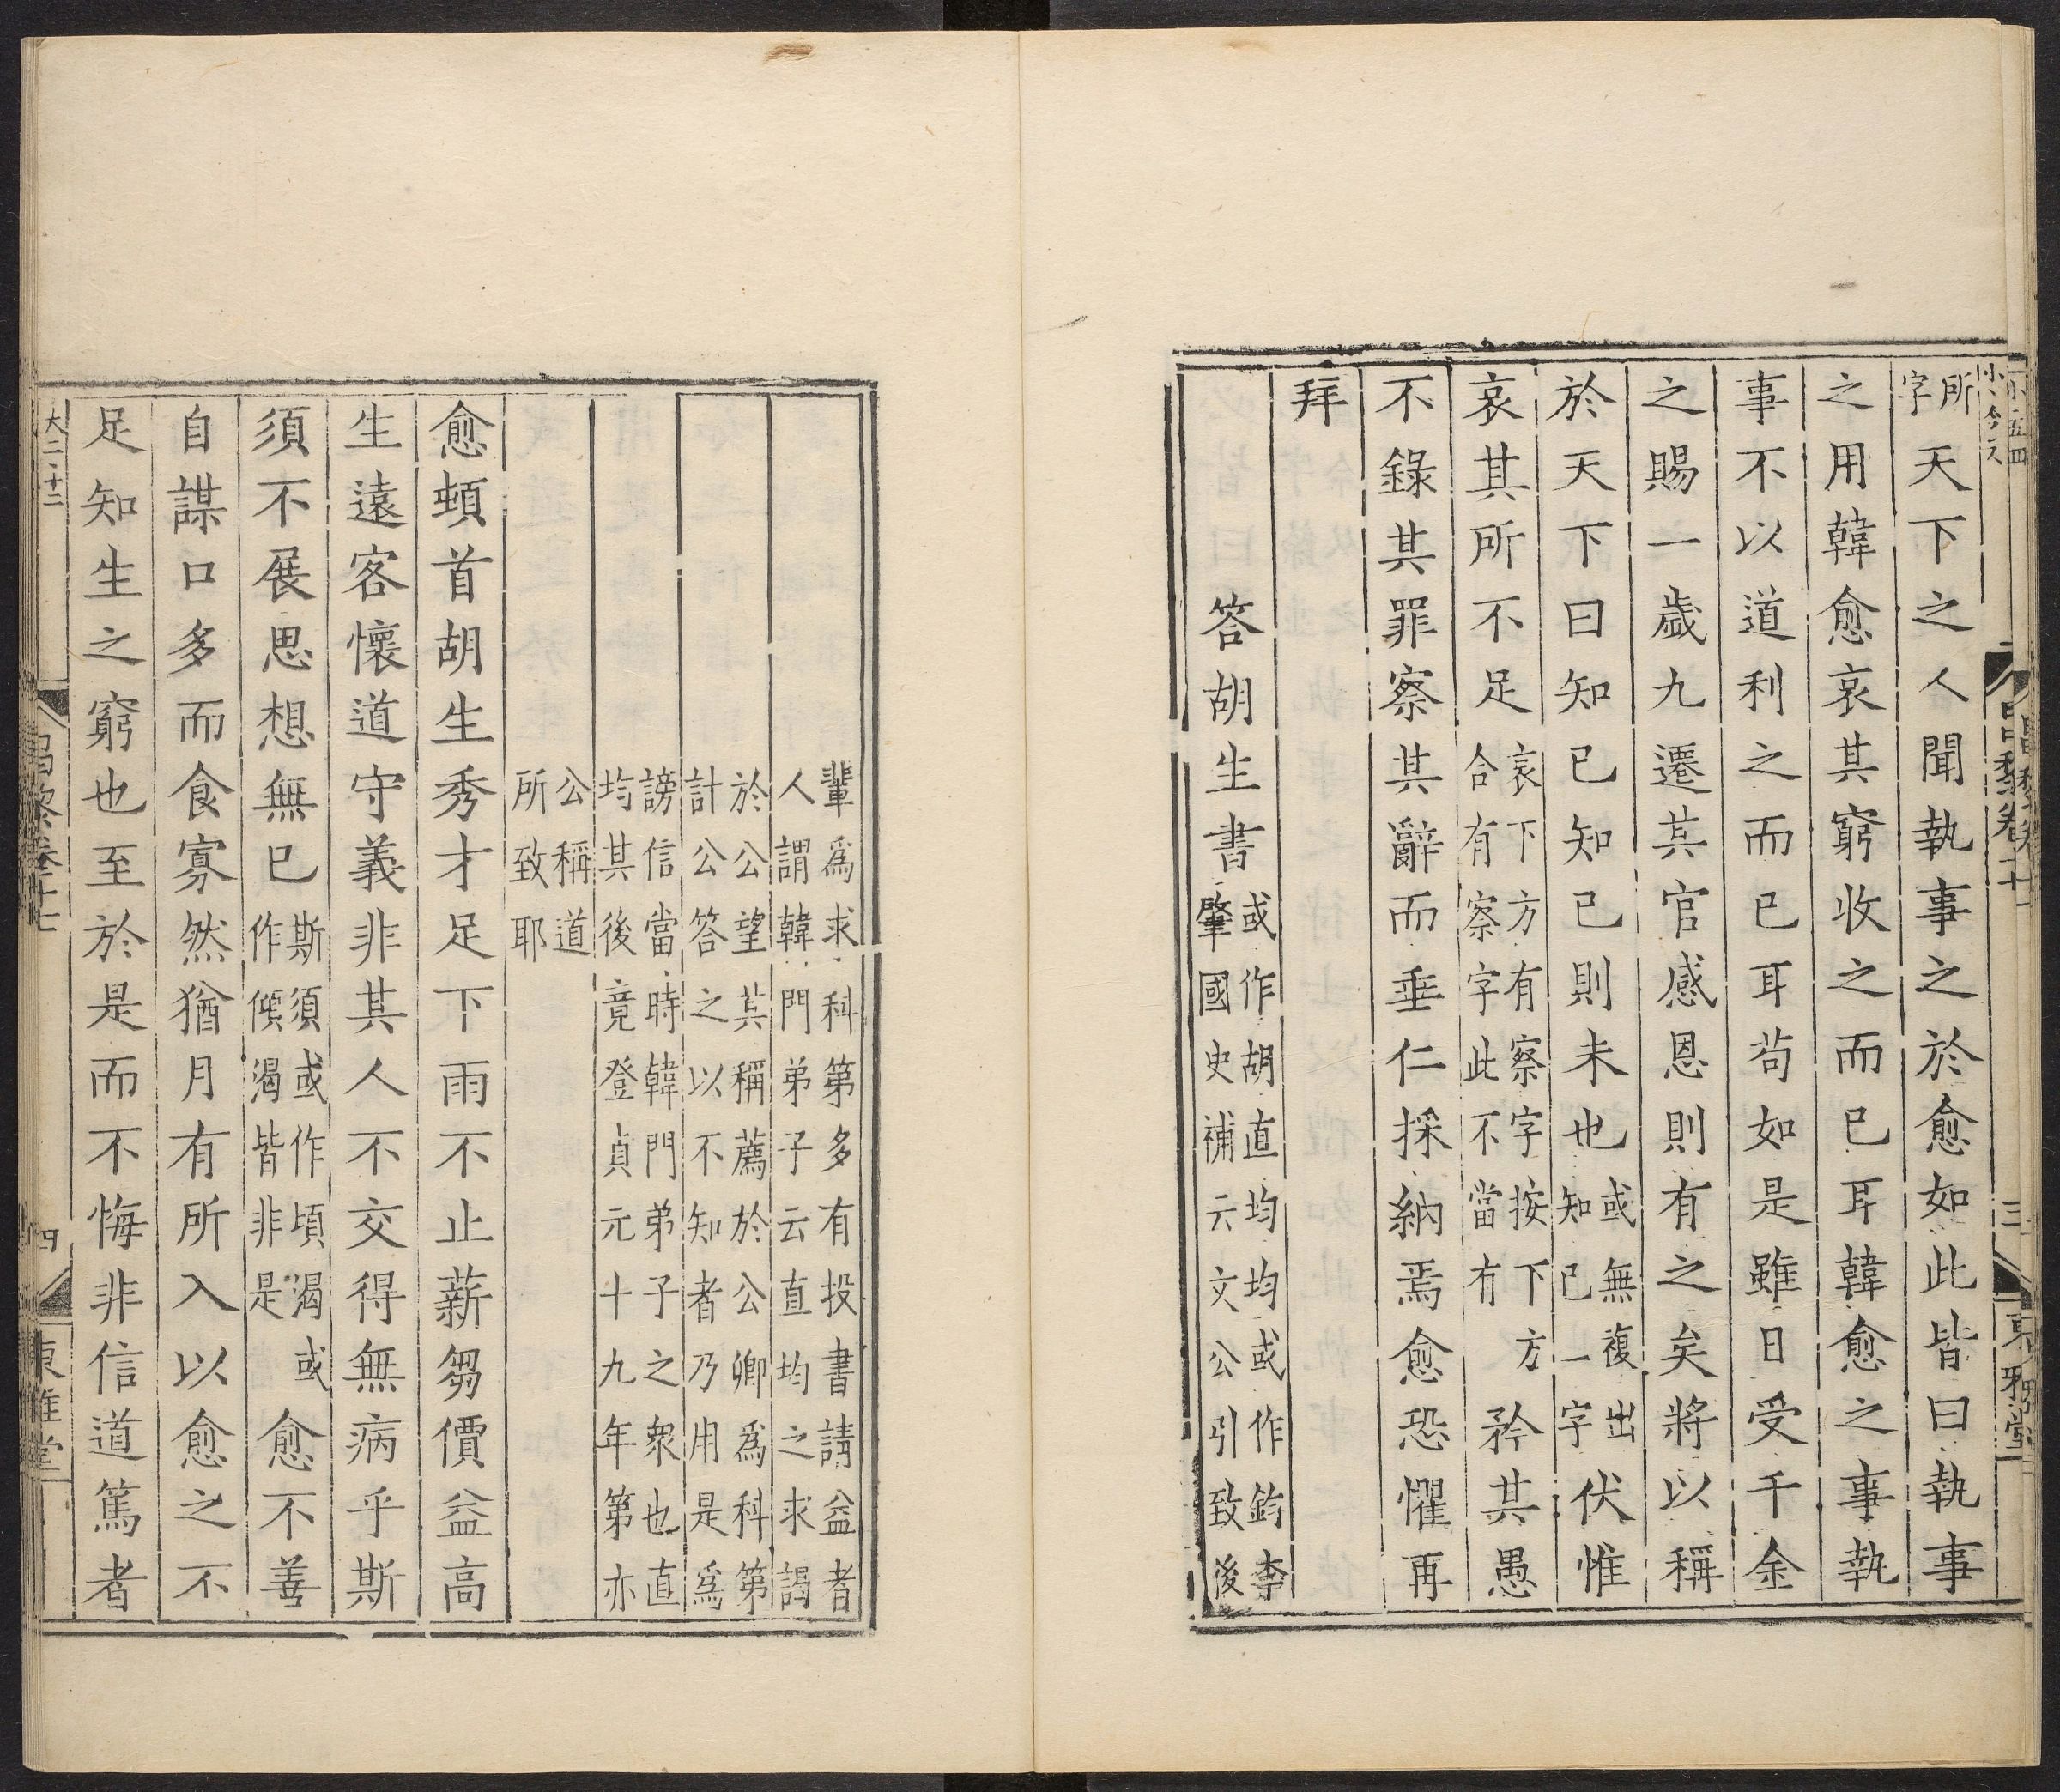 所字天下之人聞執事之於愈如此皆曰執事
之用韓愈哀其窮收之而已耳韓愈之事執
事不以道利之而已耳苟如是雖日受千金
之賜一歲九遷其官感恩則有之矣將以稱
於天下曰知已知已則未也或無複出知已二字伏惟
哀其所不足哀下方有察字按下方合有察字此不當有矜其愚
不錄其罪察其辭而垂仁採納焉愈恐懼再
拜
答胡生書或作胡直均均或作鈞李肇國史補云文公引致後
輩爲求科第多有投書請益者人謂韓門弟子云直均之求謁
於公望其稱薦於公卿爲科第計公答之以不知者乃用是爲
謗信當時韓門弟子之衆也直均其後竟登貞元十九年第亦
公稱道所致耶
愈頓首胡生秀才足下雨不止薪芻價益高
生遠客懷道守義非其人不交得無病乎斯
須不展思想無已斯須或作頃渴或作傾渴皆非是愈不善
自謀口多而食寡然猶月有所入以愈之不
足知生之窮也至於是而不悔非信道篤者
昌黎卷十七
三
東雅堂
大二十二
昌黎卷十七
四
東雅堂